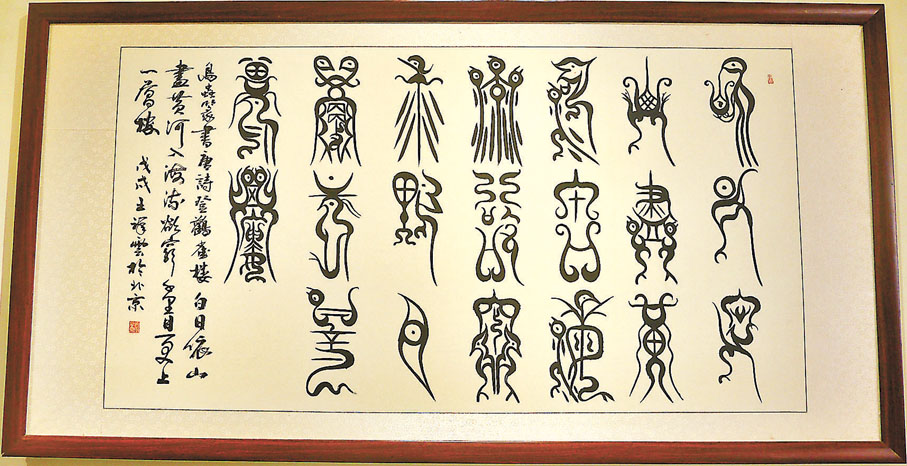 白日依
山盡黃
河入海
流欲窮
千里目
更上一
層樓
鳥蟲篆書唐詩登鸛雀樓 白日依山
盡黄河入海流欲窮千里目更上
一層樓 戊戌王祥雲於北京